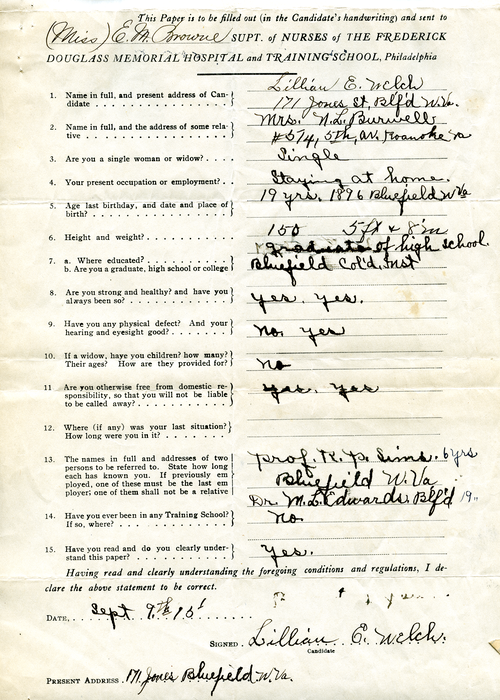 This Paper is to be filled out (in the Candidate's handwriting) and sent to
(Miss) E. M. Browne SUPT. of NURSES of THE FREDERICK
DOUGLASS MEMORIAL HOSPITAL and TRAINING SCHOOL, Philadelphia
Lillian E. Welch
1. Name in full, and present address of Can-
didate 171 Jones St, Blf'd W.Va.
Mrs. N.L. Burwell
2. Name in full, and the address of some rela-
tive #574, 5th, Av. Roanoke Va
3. Are you a single woman or widow? Single
4. Your present occupation or employment? Staying at home.
5. Age last birthday, and date and place of
birth? 19 yrs. 1896 Bluefield W Va
6. Height and weight? 150 5ft & 8in
graduate of high school.
7. a. Where educated?
b. Are you a graduate, high school or college Bluefield Col'd, Inst
8. Are you strong and healthy? and have you
always been so? yes, yes.
9. Have you any physical defect? And your
hearing and eyesight good? No, yes
10. If a widow, have you children? how many?
Their ages? How are they provided for? no
11 Are you otherwise free from domestic re-
sponsibility, so that you will not be liable
to be called away? yes, yes
12. Where (if any) was your last situation?
How long were you in it?
13. The names in full and addresses of two
persons to be referred to. State how long
each has known you. If previously em
ployed, one of these must be the last em
ployer; one of them shall not be a relative
Prof. R. P. Sims. 6 yrs
Bluefield W. Va
Dr. M. L. Edwards. Blf'd 19
14. Have you ever been in any Training School?
If so, where? No.
15. Have you read and do you clearly under-
stand this paper? Yes.
Having read and clearly understanding the foregoing conditions and regulations, I de-
clare the above statement to be correct.
DATE, Sept 9th 15
SIGNED Lillian E. Welch.
Candidate
PRESENT ADDRESS 171 Jones Bluefield W. Va.